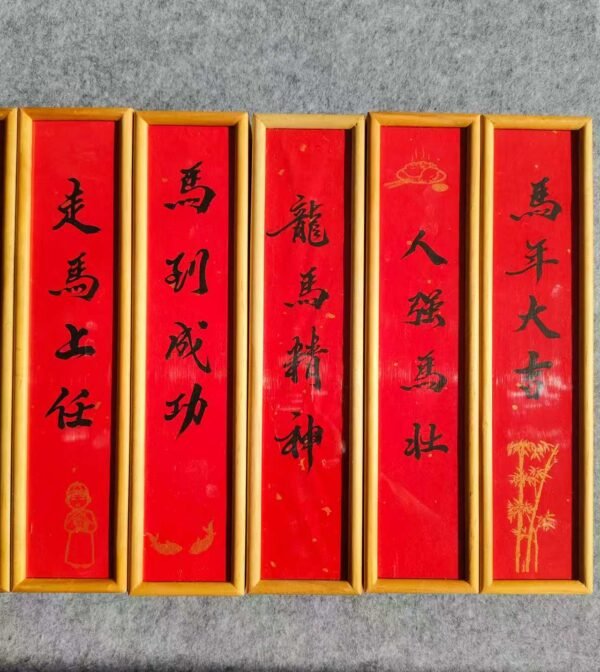 馬年大吉
人强馬壯
龍馬精神
馬到成功
走馬上任